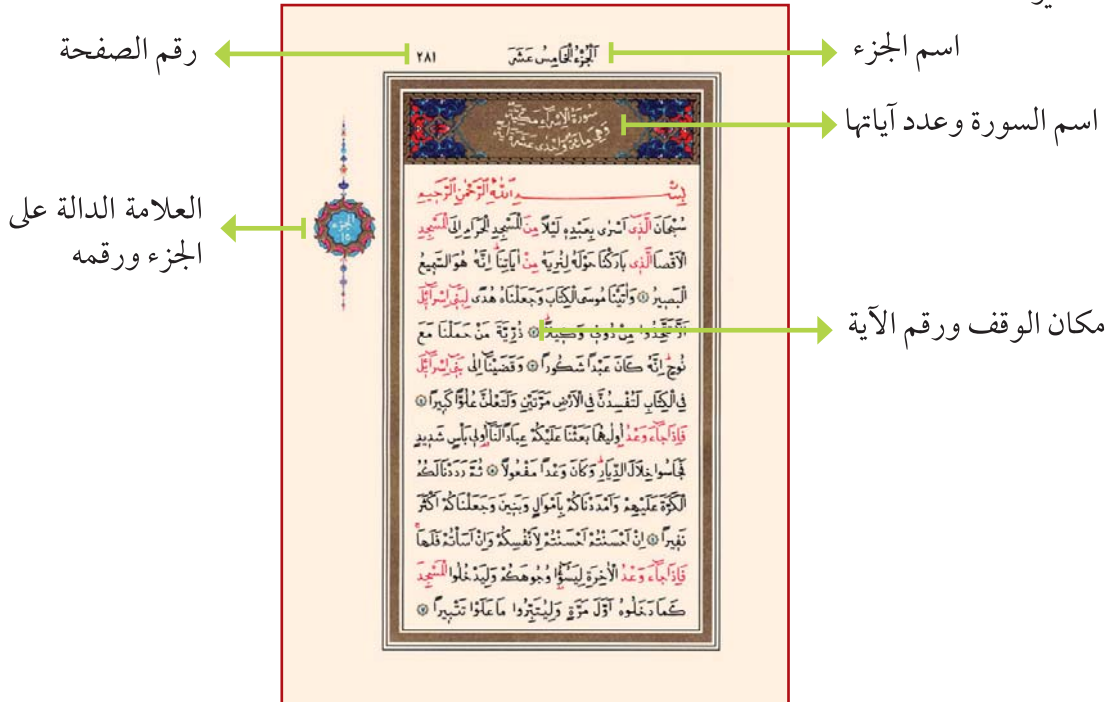 اسم الجزء
الجزء الخامس عشر
٢٨١
رقم الصفحة
اسم السورة وعدد آياتها
سورة الإسراء مكية
وهي مائة وإحدى عشرة آية
العلامة الدالة على
الجزء ورقمه
الجزء
١٥
مكان الوقف ورقم الآية
بِسْمِ اللّٰهِ الرَّحْمٰنِ الرَّحِيمِ
سُبْحَانَ الَّذِى اَسْرٰى بِعَبْدِهِ لَيْلًا مِنَ الْمَسْجِدِ الْحَرَامِ اِلَى الْمَسْجِدِ
الْاَقْصَا الَّذِى بَارَكْنَا حَوْلَهُ لِنُرِيَهُ مِنْ اٰيَاتِنَا اِنَّهُ هُوَ السَّمِيعُ
الْبَصِيرُ وَاٰتَيْنَا مُوسَى الْكِتَابَ وَجَعَلْنَاهُ هُدًى لِبَنِى اِسْرَائِلَ
اَلَّا تَتَّخِذُوا مِنْ دُونِى وَكِيلًا ذُرِّيَّةَ مَنْ حَمَلْنَا مَعَ
نُوحٍ اِنَّهُ كَانَ عَبْدًا شَكُورًا وَقَضَيْنَا اِلٰى بَنِى اِسْرَائِلَ
فِى الْكِتَابِ لَتُفْسِدُنَّ فِى الْاَرْضِ مَرَّتَيْنِ وَلَتَعْلُنَّ عُلُوًّا كَبِيرًا
فَاِذَا جَاءَ وَعْدُ اُولٰيهُمَا بَعَثْنَا عَلَيْكُمْ عِبَادًا لَنَا اُولِى بَأْسٍ شَدِيدٍ
فَجَاسُوا خِلَالَ الدِّيَارِ وَكَانَ وَعْدًا مَفْعُولًا ثُمَّ رَدَدْنَا لَكُمُ
الْكَرَّةَ عَلَيْهِمْ وَاَمْدَدْنَاكُمْ بِاَمْوَالٍ وَبَنِينَ وَجَعَلْنَاكُمْ اَكْثَرَ
نَفِيرًا اِنْ اَحْسَنْتُمْ اَحْسَنْتُمْ لِاَنْفُسِكُمْ وَاِنْ اَسَأْتُمْ فَلَهَا
فَاِذَا جَاءَ وَعْدُ الْاٰخِرَةِ لِيَسُؤُا وُجُوهَكُمْ وَلِيَدْخُلُوا الْمَسْجِدَ
كَمَا دَخَلُوهُ اَوَّلَ مَرَّةٍ وَلِيُتَبِّرُوا مَا عَلَوْا تَتْبِيرًا